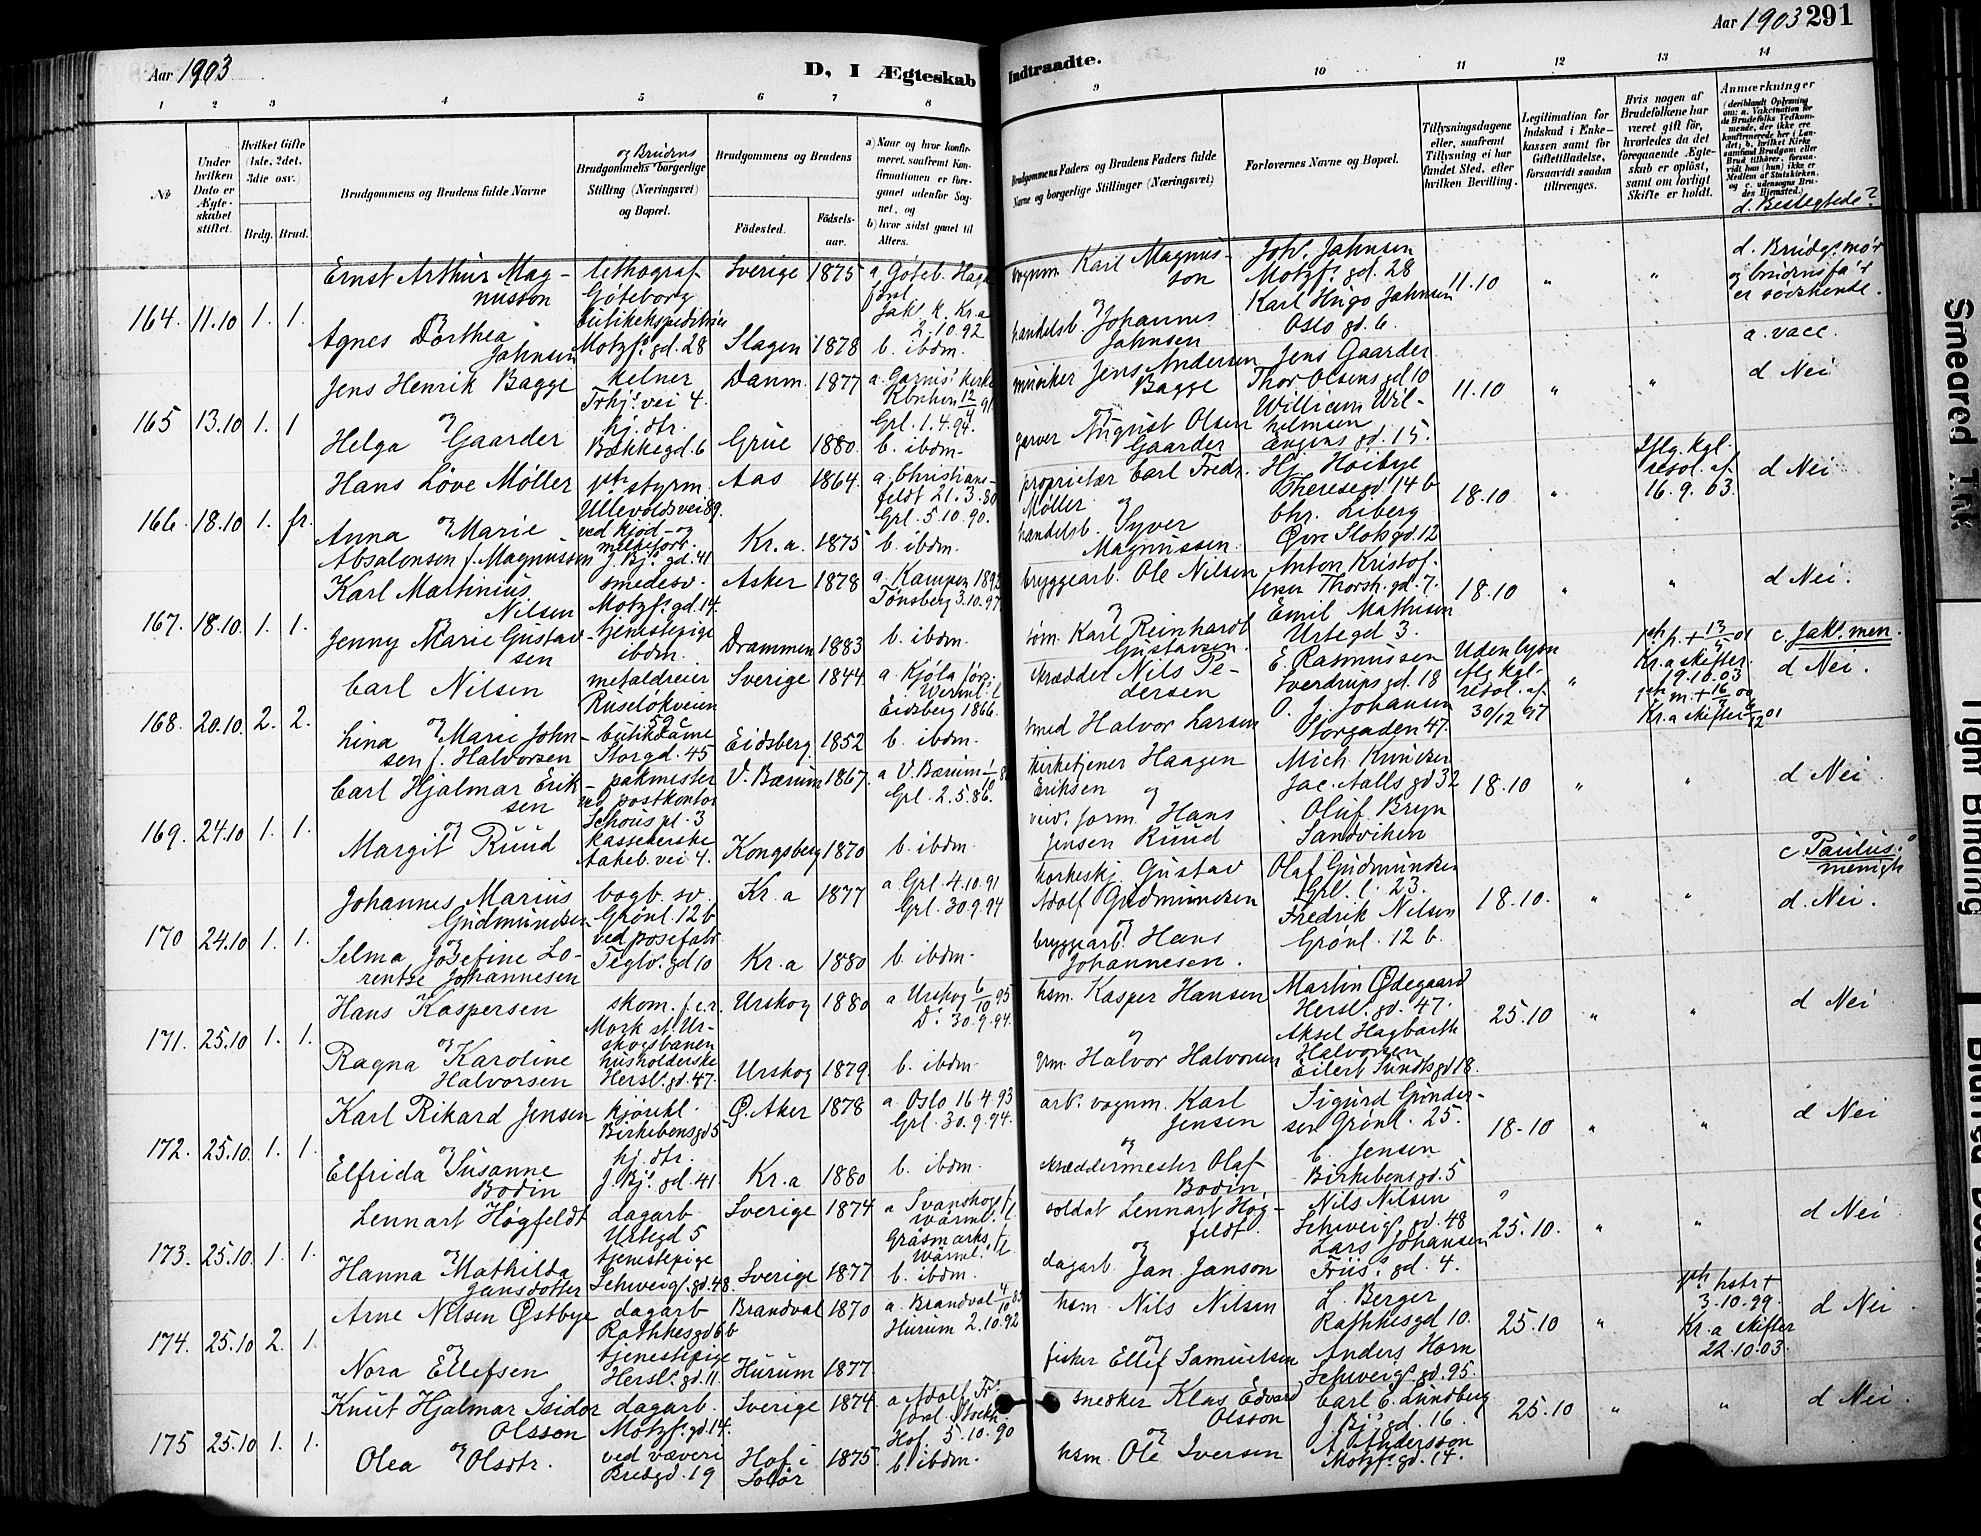 Aar 1903
D, I Ægteskab
1 2 3 4 5 6 7 8
№
Under hvilken Dato er Ægteskabet stiftet.
Hvilket Gifte (1ste, 2det, 3die osv.)
Brdg. Brud.
Brudgommens og Brudens fulde Navne
og Brudens
Brudgommens borgerlige Stilling (Næringsvei) og Bopæl.
Brudgommens og Brudens
Fødested.
Fødselsaar.
a) Naar og hvor konfirmeret, saafremt Konfirmationen er foregaaet udenfor Sognet, og
b) hvor sidst gaaet til Alters.
164. 11.10 1. 1.
Ernst Arthur Magnusson
Göteborg
Sverige 1875
og
Agnes Dorthea Jahnsen
Motzf.s gd. 28
Slagen 1878
2.10.92
b. ibdm.
165 13.10 1. 1
Jens Henrik Bagge
kelner
Danm. 1877
og
Helga Gaarder
Bækkegd. 6
Grue 1880
Grl. 1.4.94.
b. ibdm.
166. 18.10 1. fr.
Hans Löve Møller
styrm.
Aas 1864
a. Christiansfeldt 21.3.80
Grl. 5.10.90.
og
Anna Marie Absalonsen f. Magnussen
Kr.a. 1875
b. ibdm.
167. 18.10. 1. 1.
Karl Martinius Nilsen
smedesv.
Motzf.s gd. 14.
Asker 1878
a. Kampen 1892
Tønsberg 3.10.97
og
Jenny Marie Gustavsen
tjenestepige
ibdm.
Drammen 1883
b. ibdm.
168. 20.10. 2. 2.
Carl Nilsen
metaldreier
Ruseløkveien
Sverige 1844
Eidsberg 1866.
og
Lina Marie Johnsen f. Halvorsen
butikdame
Storgd. 45
Eidsberg 1852
b. ibdm.
169. 24.10 1. 1.
Carl Hjalmar Eriksen
pakmester
ved postkontor
Schous pl. 3
V. Bærum 1867.
Grl. 2.5.86.
og
Margit Ruud
kassererske
Aakeb. vei 4.
Kongsberg 1870
b. ibdm.
170 24.10 1. 1.
Johannes Marius Gudmundsen
bogb. sv.
Grønl. 12 b
Kr.a 1877
a. Grl. 4.10.91
Grl. 30.9.94
og
Selma Josefine Lorentse Johannesen
ved posefabr.
Teglv. gd 10
Kr.a 1880
b. ibdm.
171. 25.10 1. 1.
Hans Kaspersen
skom. f.e.r.
Mork st. Urskogsbanen
Urskog 1880
a. Urskog 6/10 95
D.o 30.9.94.
og
Ragna Karoline Halvorsen
husholderske
Hersl.s gd. 47.
Urskog 1879.
b. ibdm
172. 25.10. 1. 1.
Karl Rikard Jensen
kjørekl.
Birkebensgd 5
Ø. Aker 1878
a. Oslo 16.4.93
Grl. 30.9.94.
og
Elfrida Susanne Bodin
hj. dtr.
J. Bj.s gd. 41
Kr.a 1880
b. ibdm.
173. 25.10. 1. 1.
Lennart Høgfeldt
dagarb.
Urtegd 5
Sverige 1874
a Svanskog
Wärml.
og
Hanna Mathilda Jansdotter
tjenestepige
Schweig.s gd. 48.
Sverige 1877
Gräsmarks
Wärml.
b. ibdm.
174. 25.10 2. 1.
Arne Nilsen Østbye
dagarb
Rathkesgd 6b
Brandval 1870
a. Brandval 4/10 85
Hurum 2.10.92
og
Nora Ellefsen
tjenestepige
Hersl.s gd. 11.
Hurum 1877.
175 25.10 1. 1.
Knut Hjalmar Isidor Olsson
dagarb.
Motzf.s gd. 14.
Sverige 1874.
a Adolf Fr.s förs. Stockh.
Hof 5.10.90
og
Olea Olsdtr.
ved væveri
Bredgd. 19
Hof i Solør 1875.
b. ibdm.
Aar 1903 291
Indtraadte.
9 10 11 12 13 14
Brudgommens Faders og Brudens Faders fulde Navne og borgerlige Stillinger (Næringsvei)
Forlovernes Navne og Bopæl.
Tillysningsdagene eller, saafremt Tillysning ei har fundet Sted, efter hvilken Bevilling.
Legitimation for Indskud i Enkekassen samt for Giftetilladelse, forsaavidt saadan tiltrænges.
Hvis nogen af Brudefolkene har været gift før, hvorledes da det foregaaende Ægteskab er opløst, samt om lovligt Skifte er holdt.
Anmærkninger
(deriblandt Oplysning om: a. Vakcination for de Brudefolks Vedkommende, der ikke ere konfirmerede her i Landet; b. hvilket Kirkesamfund Brudgom eller Brud tilhører, forsaavidt han (hun) ikke er Medlem af Statskirken, og c. udensogns Brudes Hjemsted.)
d. Beslegtede?
vognm. Karl Magnusson
og
handelsb. Johannes Jahnsen
Joh. Jahnsen
Motzf.s gd. 28
Karl Hugo Jahnsen
Oslo gd. 6.
11.10 " "
d. Brudg.s mo'r og brudens fa'r er sødskende.
a. vacc.
musiker Jens Andersen Bagge
og
garver August Olsen Gaarder
Jens Gaarder
Thor Olsens gd 10
William Wilhelmsen
Ængens gd. 15.
11.10 " "
d Nei
proprietær Carl Fredr. Møller
og
handelsb. Syver Magnussen.
Hj. Høibye
Theresegd 14 b
Chr. Liberg
Øvre Slotsgd. 12
18.10 "
Iflg. kgl. resol. af 16.9.03.
d Nei
bryggearb. Ole Nilsen
og
Karl Reinhardt Gustavsen.
Anton Kristofersen Thorsh. gd. 7.
Emil Mathisen
Urtegd 3.
18.10 " "
d Nei.
skrædder Nils Pedersen
smed Halvor Larsen
E. Rasmussen
Sverdrups gd. 18
O. J. Johansen
Storgaden 47.
Uden lysn. iflg. kgl. resol. af 30/12 97
"
Kr.a skifter. 19.10.03
Kr.a skifter
c. Jak. men.
d Nei.
kirketjener Haagen Eriksen
og
veiv. form. Hans Jensen Ruud
Mich. Knudsen
Jac. Aalls gd 32
Oluf Bryn
Sandviken
18.10 " "
d Nei
Gustav Adolf Gudmundsen
og
bryggearb. Hans Johannesen.
Olaf Gudmundsen
Grl. l. 23.
Fredrik Nilsen
Grønl. 12 b.
18.10. " "
c. Paulus menigh
d. Nei.
hsm. Kasper Hansen
og
grm. Halvor Halvorsen
Martin Ødegaard
Hersl.s gd. 47.
Aksel Hagbarth Halvorsen
Eilert Sundts gd 18.
25.10 " "
d Nei
arb. vognm. Karl Jensen
og
skræddermester Olaf Bodin
Sigurd Gundersen Grønl. 25.
C. Jensen
Birkebensgd. 5
18-10 " "
d Nei
soldat Lennart Høgfeldt
og
dagarb. Jan Janson
Nils Nilsen
Schweig.s gd. 48
Lars Johansen
Friis.s gd. 4.
25.10. " "
d Nei
hsm. Nils Nilsen
og
fisker Ellef Samuelsen
L. Berger
Rathkesgd 10.
Anders Horn
Schweig.s gd. 95.
25.10 "
3.10.99.
Kr.a skifter 22.10.03.
d Nei
snedker Klas Edvard Olsson
og
hsm. Ole Iversen
Carl E. Lundberg
J. Bj.s gd. 16.
A. Andersson
Motzf.s gd. 14.
25.10 " "
d Nei
Smeared Ink
Tight Binding